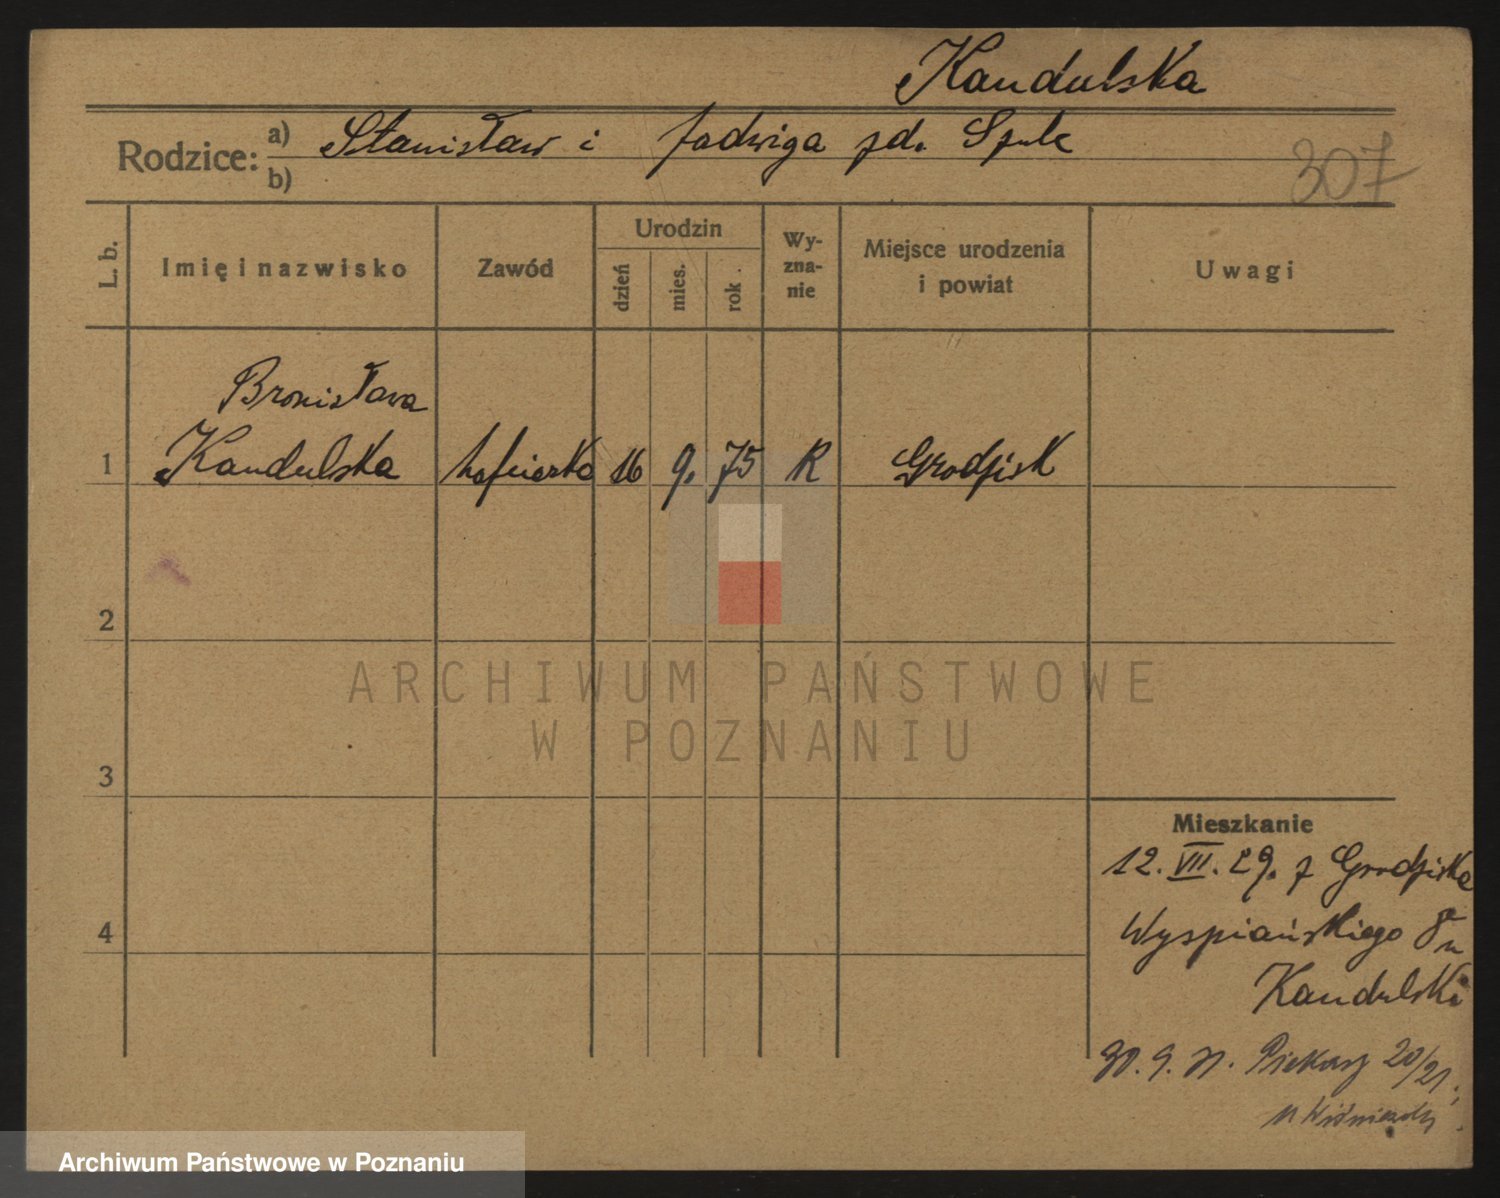 Kandulska
Rodzice: a) Stanisław i Jadwiga zd. Szulc
b)
307
L. b.
Imię i nazwisko
Zawód
Urodzin
dzień
mies.
rok.
Wy-
zna-
nie
Miejsce urodzenia
i powiat
Uwagi
Bronisława
1 Kandulska hafciarka 16 9. 75 R Grodzisk
2
3
4
Mieszkanie
12. VII. 29. z Grodziska
Wyspiańskiego 8a
u
Kandulski
30. 9. 31. Piekary 20/21
u
ARCHIWUM PAŃSTWOWE
W POZNANIU
Archiwum Państwowe w Poznaniu